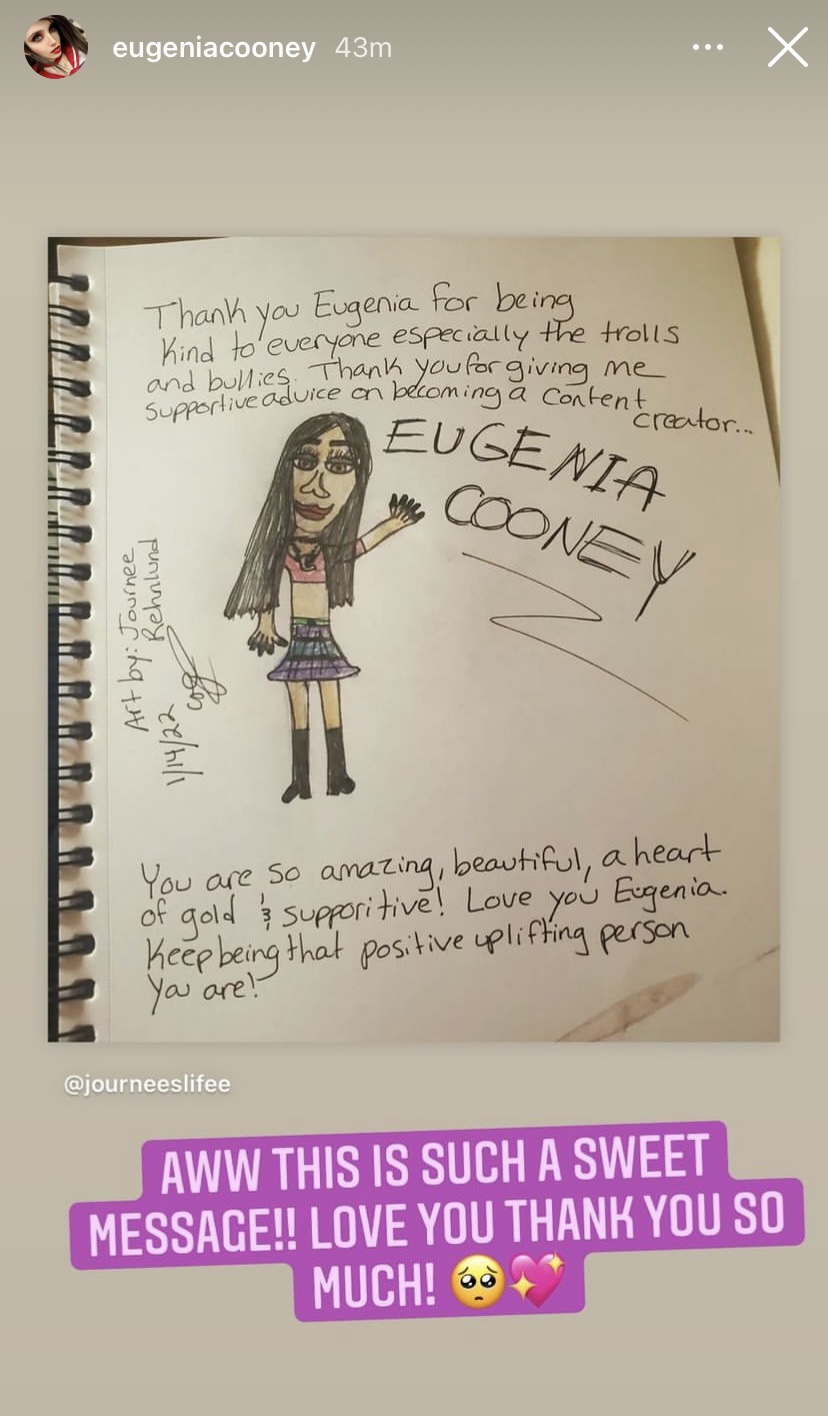 eugeniacooney 43m
Thank you Eugenia for being
kind to everyone especially the trolls
and bullies. Thank you for giving me
supportive advice on becoming a content
creator...
EUGENIA
COONEY
Art by: Journee
Rehnlund
1/14/22
You are so amazing, beautiful, a heart
of gold & supporitive! Love you Eugenia.
Keep being that positive uplifting person
You are!
@journeeslifee
AWW THIS IS SUCH A SWEET
MESSAGE!! LOVE YOU THANK YOU SO
MUCH! 🥺💖